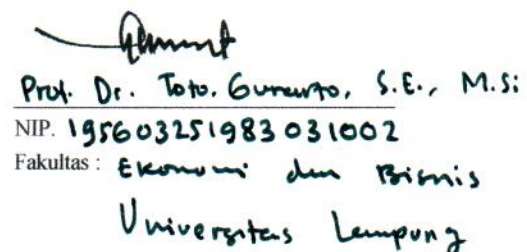 Prof. Dr. Toto. Gunarto, S.E., M.Si
NIP. 195603251983031002
Fakultas : Ekonomi dan Bisnis
Universitas Lampung